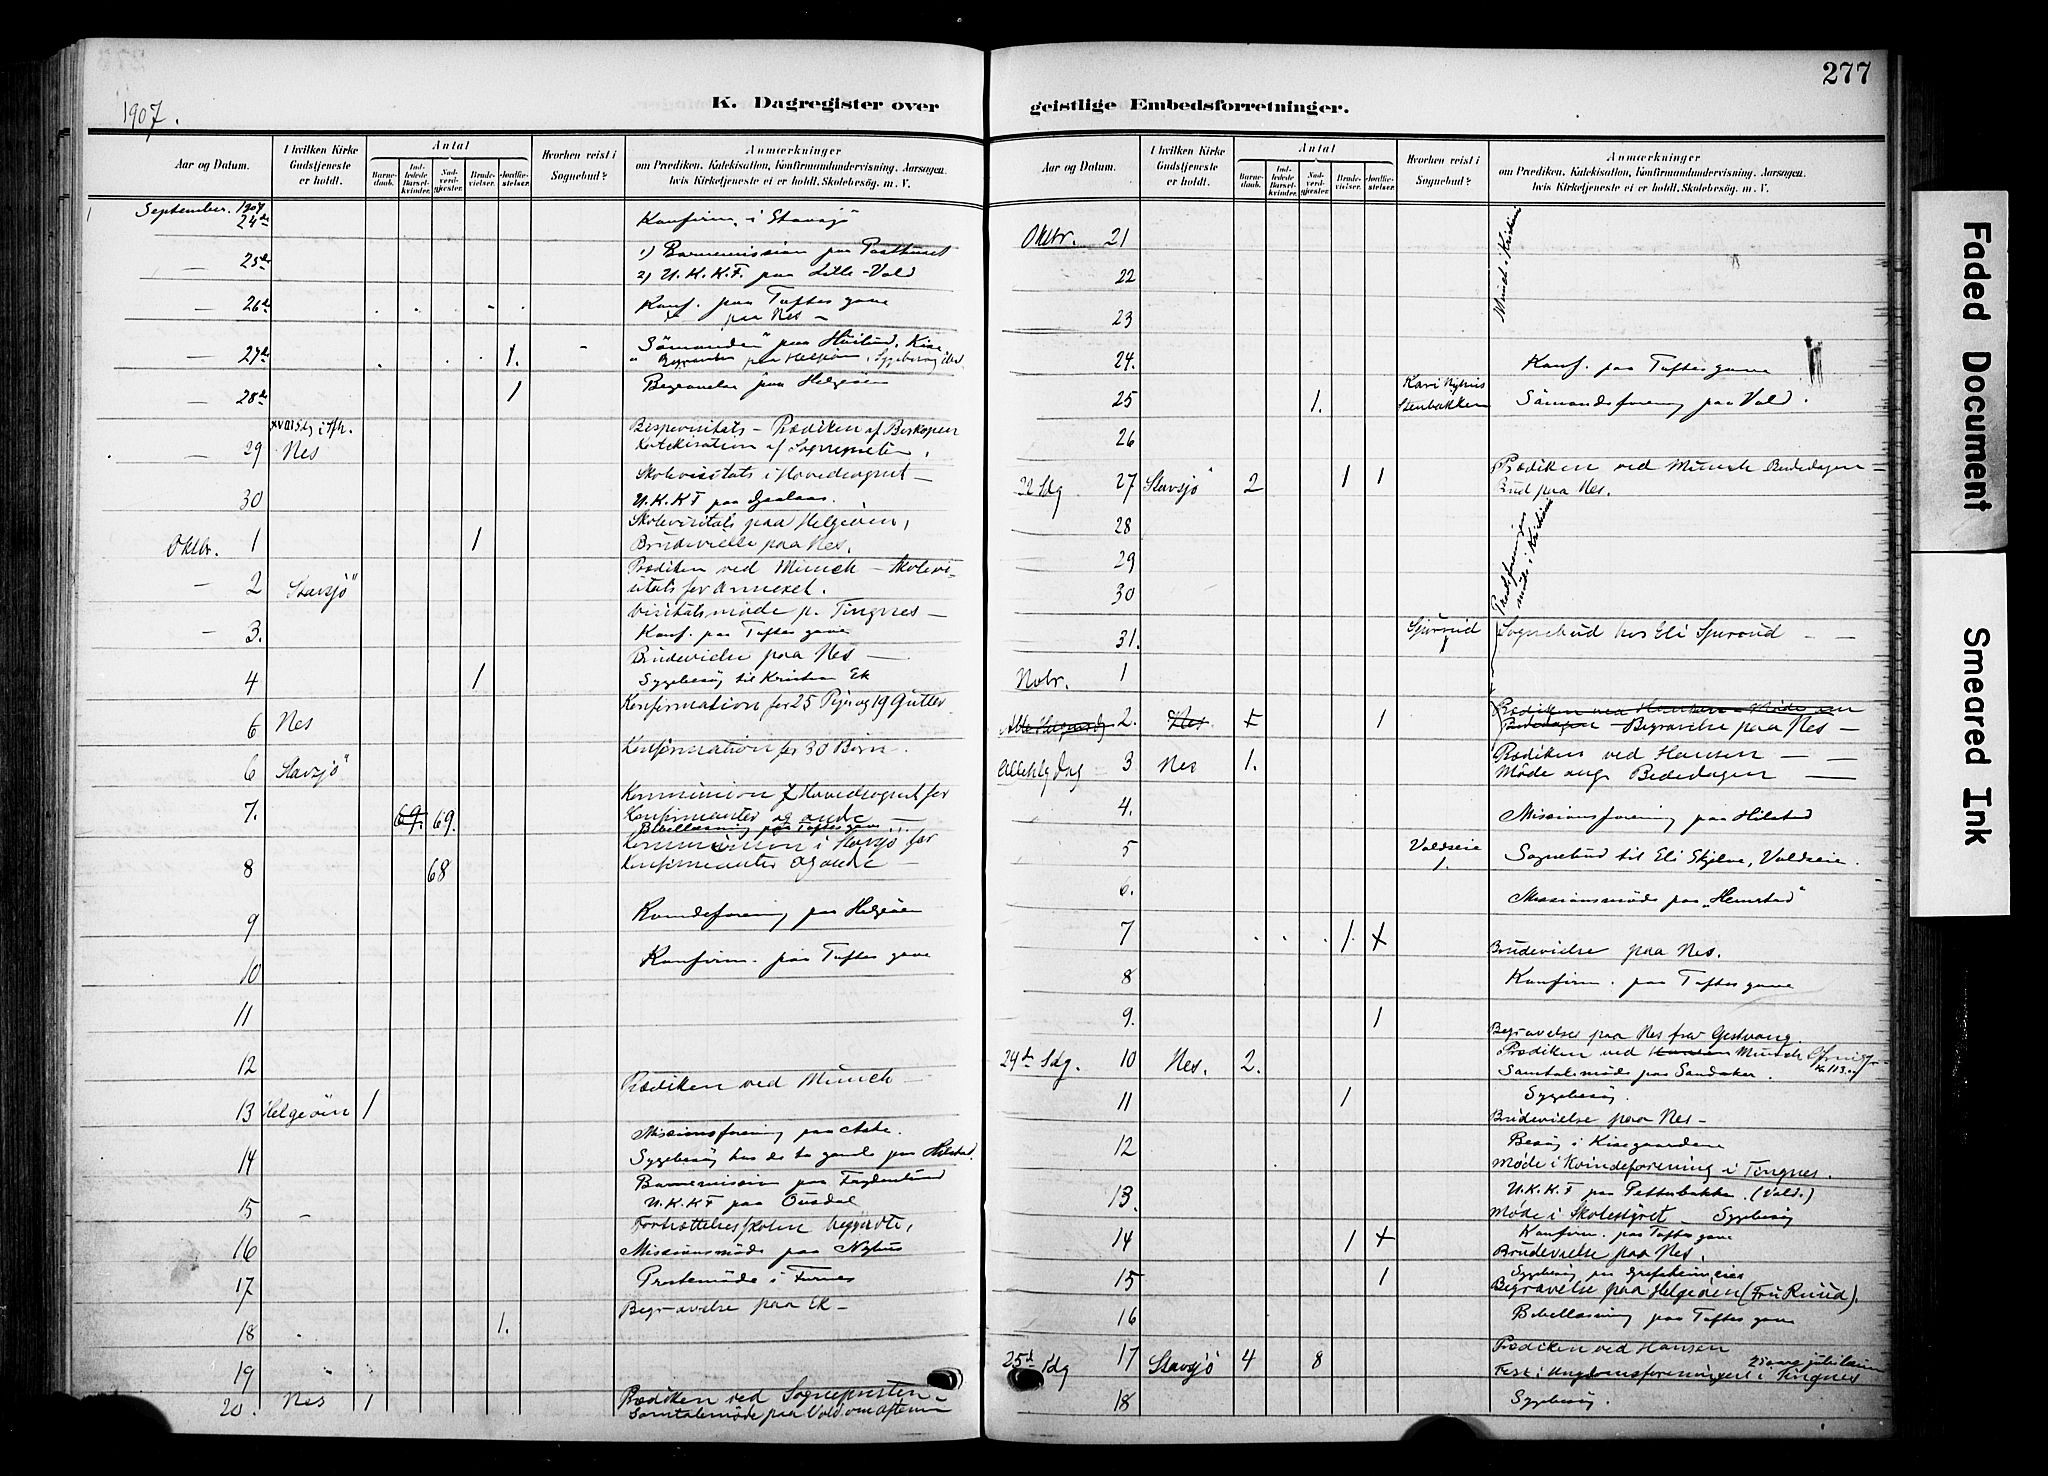 277
1907.
K. Dagregister over geistlige Embedsforretninger.
Aar og Datum.
I hvilken Kirke Gudstjeneste er holdt.
Antal
Barnedaab.
Indledede Barselkvinder.
Nadverdgjester.
Brudevielser.
Jordfæstelser.
Hvorhen reist i Sognebud?
Anmærkninger
om Prædiken, Katekisation, Konfirmandundervisning, Aarsagen,
hvis Kirketjeneste ei er holdt, Skolebesög, m. V.
September. 1907
24de Konfirm. i Stavsjö
— 25de 1) Barnemission paa Posthuset
2) U.K.K.F. paa Lille-Vold
— 26de Konf. paa Toftes gave
paa Nes —
— 27de 1. "Sömanden" paa Hüslund, Kise
" Begravelse paa Helgöen, Sygebesög
28de 1 Begravelse paa Helgeöen
— 29 Nes Bispevisitats — Prædiken af Biskopen
Katekisation af Sognepresten.
30 Skolevisitats i Hovedsognet —
U.K.K.F paa
Oktbr. 1 1 Skolevisitats paa Helgeöen,
Brudevielse paa Nes.
— 2 Stavsjö Prædiken ved Münch — Skolevi-
sitats for Annexet.
— 3. Visitatsmöde p. Tingnes —
Konf. paa Toftes gave
4 1 Brudevielse paa Nes —
Sygebesög til Kristian Ek
6 Nes Konfirmation for 25 Piger og 19 Gutter
6 Stavsjö Konfirmation for 30 Börn.
7. 69. 69. Kommunion f Hovedsognet for
Konfirmanter og andre —
Bibellæsning paa Toftes gave
8 68 Kommunion i Stavsjö for
Konfirmanter og andre —
9 Kvindeforening paa Helgöen
10 Konfirm. paa Toftes gave
11
12
13 Helgeöen 1 Prædiken ved Münch
14 Missionsforening paa
Sygebesög hos de to gamle paa Hilstad.
15 Barnemission paa Fagderlund
U.K.K.F paa Ousdal
16 Fortsættelsesskolen begyndte,
Missionsmöde paa Nyhus
17 Prestemöde i Furnes
18 1. Begravelse paa Ek —
19
20. Nes 1 Prædiken ved Sognepresten.
Samtalemöde paa Vold om Aftenen
Aar og Datum.
I hvilken Kirke Gudstjeneste er holdt.
Antal
Barnedaab.
Indledede Barselkvinder.
Nadverdgjester.
Brudevielser.
Jordfæstelser.
Hvorhen reist i Sognebud?
Anmærkninger
om Prædiken, Katekisation, Konfirmandundervisning, Aarsagen,
hvis Kirketjeneste ei er holdt, Skolebesög, m. V.
Oktbr. 21
22
23
24. Konf. paa Toftes gave
25 1. Kari
Stenbakken Sömandsforening paa Vold.
26
22 Sdg 27 Stavsjö 2 1 1 Prædiken ved Münch Bededagen —
Brud paa Nes.
28
29
30
31. Sjursrud Sognebud hos Eli Sjursrud — —
Novbr. 1
2. Nes 1 Prædiken ved Hansen — Möde om
Bededagen — Begravelse paa Nes —
Allehlg Dag 3 Nes 1. Prædiken ved Hansen — —
Möde ang. Bededagen —
4. Missionsforening paa Hilstad
5 Voldseie
1. Sognebud til Eli Skjelve, Voldseie.
6. Missionsmöde paa "Hemstad"
7 1. Brudevielse paa Nes.
8 Konfirm. paa Toftes gave
9. 1 Begravelse paa Nes fra Gestvang.
24de Sdg. 10 Nes. 2. Prædiken ved Hansen Münch Ofring
Kr 113.
Samtalemöde paa Sandaker.
11 1 Sygebesög.
Brudevielse paa Nes —
12 Besög i Kisegaardene
Möde i Kvindeforening i Tingnes.
13. U.K.K.F paa Petterbakke. (Vold.)
Möde i Skolestyret — Sygebesög
14 1 Konfirm. paa Toftes gave
Brudevielse paa Nes.
15 1 Sygebesög paa Grefsheimeie
Begravelse paa Helgeöen (Fru Ruud).
16 Bibellæsning paa Toftes gave
25de Sdg 17 Stavsjö 4 8 Prædiken ved Hansen
Fest i Ungdomsforeningen i Tingnes
25 aars jubilæum
18 Sygebesög.
Faded Document
Smeared Ink